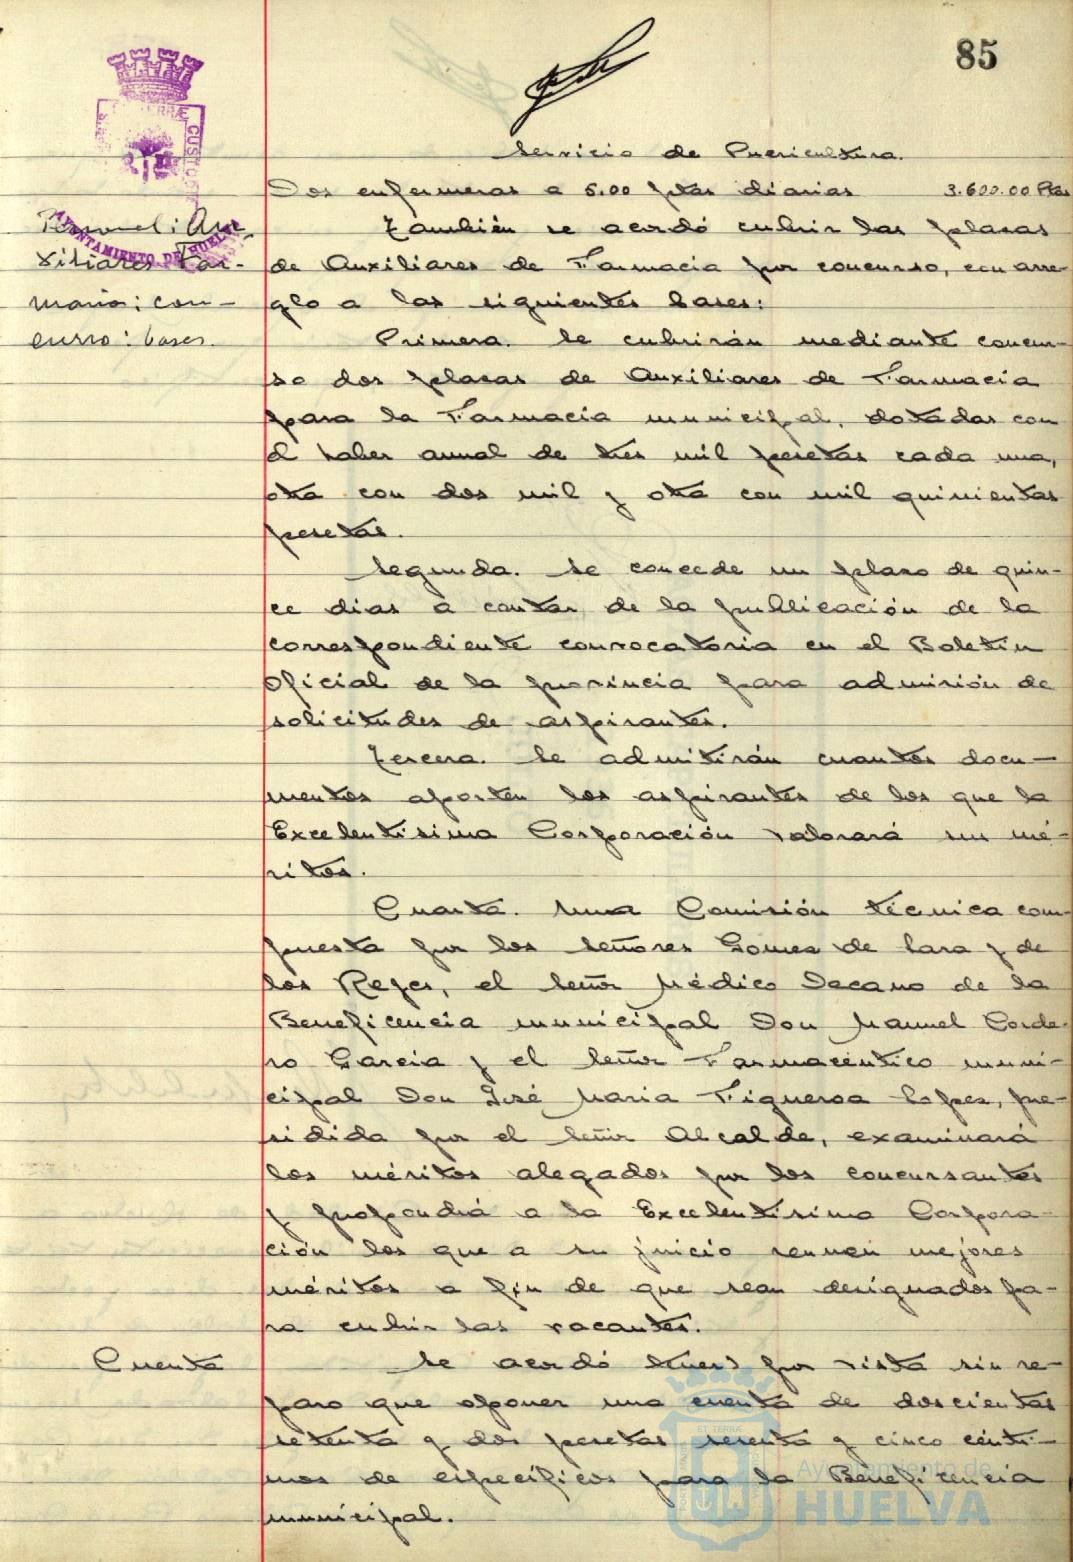 85
Servicio de Puericultura.
Dos enfermeras a 5.00 ptas diarias 3.600.00 Ptas
Personal: Au-
xiliares Far-
macia: con-
curso: bases.
AYUNTAMIENTO DE HUELVA
También se acordó cubrir las plazas
de Auxiliares de Farmacia por concurso, con arre-
glo a las siguientes bases:
Primera. Se cubrirán mediante concur-
so dos plazas de Auxiliares de Farmacia
para la Farmacia municipal, dotadas con
el haber anual de tres mil pesetas cada una,
otra con dos mil y otra con mil quinientas
pesetas.
Segunda. Se concede un plazo de quin-
ce dias a contar de la publicación de la
correspondiente convocatoria en el Boletin
Oficial de la provincia para admisión de
solicitudes de aspirantes.
Tercera. Se admitirán cuantos docu-
mentos aporten los aspirantes de los que la
Excelentísima Corporación valorará sus mé-
ritos.
Cuarta. Una Comisión técnica com-
puesta por los señores Gomez de Lara y de
los Reyes, el Señor Médico Decano de la
Beneficencia municipal Don Manuel Corde-
ro Garcia y el Señor Farmacéutico muni-
cipal Don José Maria Figueroa Lopez, pre-
sidida por el Señor Alcalde, examinará
los méritos alegados por los concursantes
y propondrá a la Excelentísima Corpora-
ción los que a su juicio reunen mejores
méritos a fin de que sean designados pa-
ra cubrir las vacantes.
Cuenta
Se acordó tener por vista sin re-
paro que oponer una cuenta de doscientas
setenta y dos pesetas sesenta y cinco cénti-
mos de específicos para la Beneficencia
municipal.
Ayuntamiento de
HUELVA